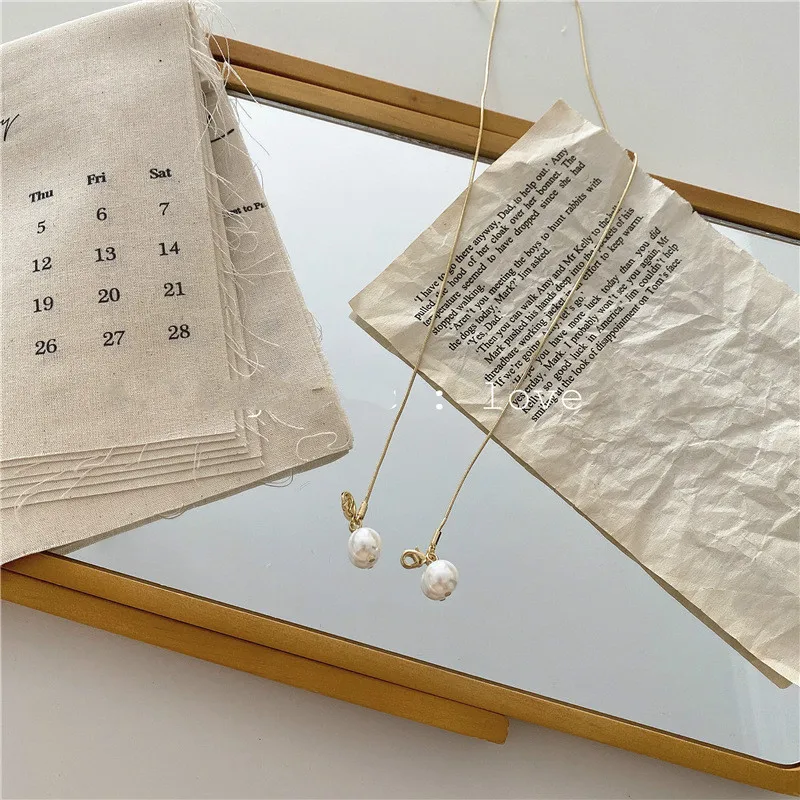 Thu Fri Sat
5 6 7
12 13 14
19 20 21
26 27 28
nt to Pu
'I have to go there anyway, Dad, to help out.' Amy
pulled the hood of her cloak over her bonnet. The
temperature seemed to have dropped since she had
stopped walking.
'Aren't you meeting the boys to hunt rabbits with
the dogs today, Mark?' Jim asked.
'Yes, Dad.'
'Then you can walk Amy and Mr Kelly to the
Mark pushed his hands deep into the of his
threadbare working jacket effort to keep warm.
'If we're going let's go.'
you have more luck today than you did
yesterday, Mark. I probably won't see you again, Mr
Kelly, so good luck in America.' Jim couldn't help
smiling at the look of disappointment on Tom's face.
: love